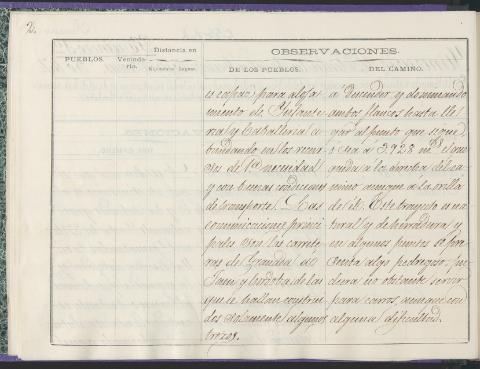 2.
PUEBLOS.
Vecinda-
rio.
Distancia en
Kilómetros Leguas.
OBSERVACIONES.
DE LOS PUEBLOS.
DEL CAMINO.
es capaz para aloja
miento de Infante
ria y Caballeria a
bundando en los recur
sos de 1ª necesidad
y con buenas condiciones
de transporte. Las
comunicaciones princi
pales son las carrete
ras de Granada de
Jaen y Cordoba de las
que se hallan construi
dos solamente algunos
trozos.
á descender y dominando
ambos flancos hasta lle
gar al punto que sigue
ó sea á 3.928 m.
queda á la derecha del ca
mino aunque a la orilla
de él. Este trayecto es na
tural y de herradura y
en algunos puntos se pre
senta algo pedregoso pu
diera no obstante servir
para carros, aunque con
alguna dificultad.